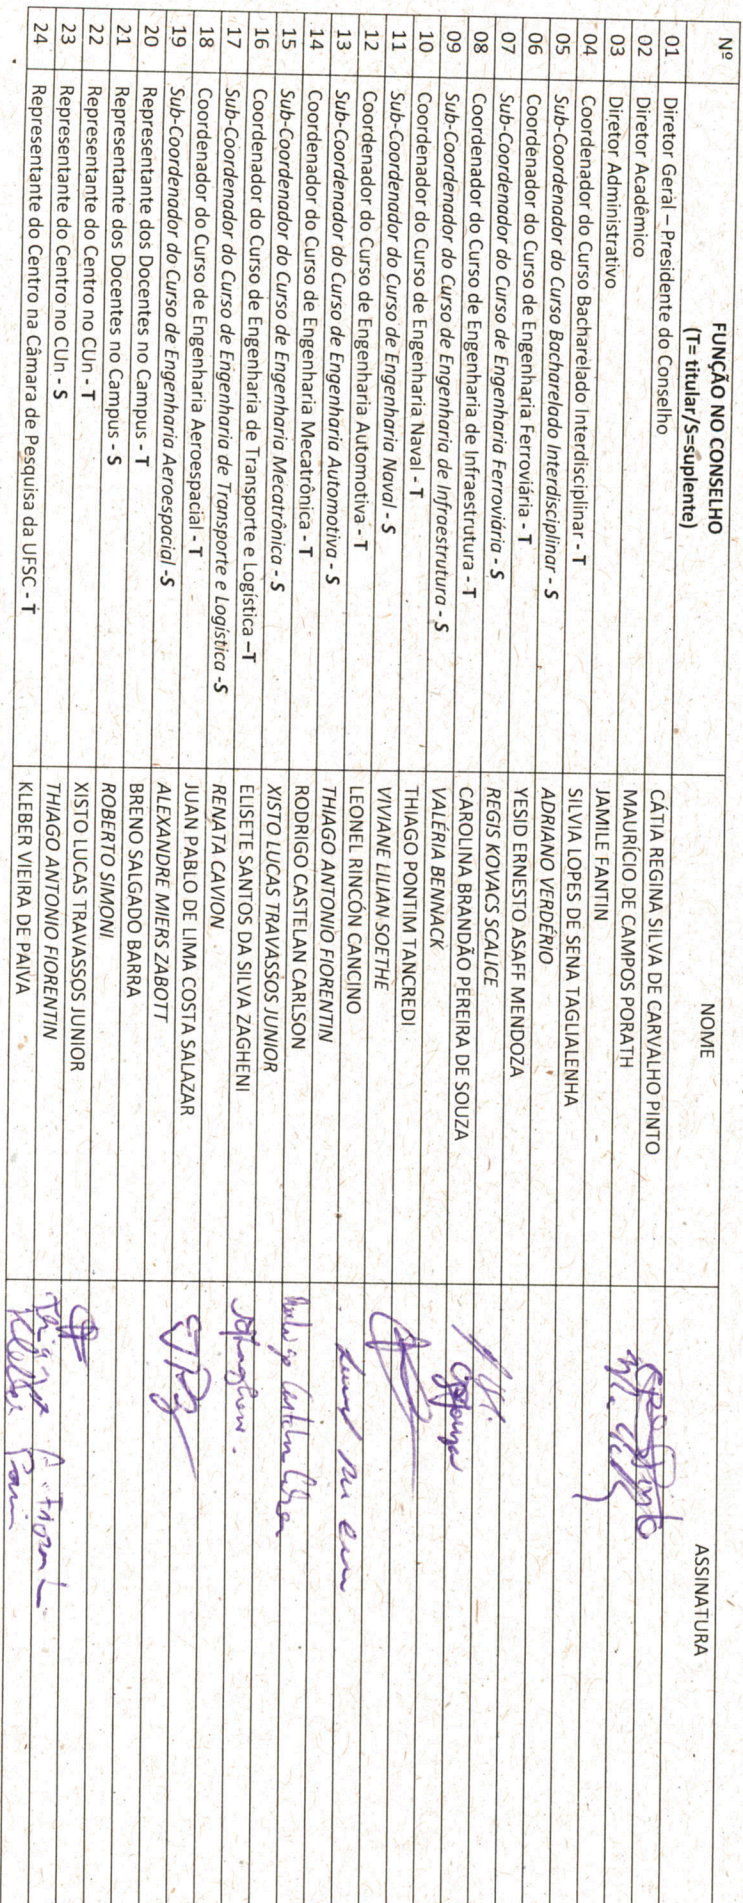 Nº FUNÇÃO NO CONSELHO (T= titular/S=suplente) NOME ASSINATURA
01 Diretor Geral – Presidente do Conselho CÁTIA REGINA SILVA DE CARVALHO PINTO
02 Diretor Acadêmico MAURÍCIO DE CAMPOS PORATH
03 Diretor Administrativo JAMILE FANTIN
04 Coordenador do Curso Bacharelado Interdisciplinar - T SILVIA LOPES DE SENA TAGLIALENHA
05 Sub-Coordenador do Curso Bacharelado Interdisciplinar - S ADRIANO VERDÉRIO
06 Coordenador do Curso de Engenharia Ferroviária - T YESID ERNESTO ASAFF MENDOZA
07 Sub-Coordenador do Curso de Engenharia Ferroviária - S REGIS KOVACS SCALICE
08 Coordenador do Curso de Engenharia de Infraestrutura - T CAROLINA BRANDÃO PEREIRA DE SOUZA
09 Sub-Coordenador do Curso de Engenharia de Infraestrutura - S VALÉRIA BENNACK
10 Coordenador do Curso de Engenharia Naval - T THIAGO PONTIM TANCREDI
11 Sub-Coordenador do Curso de Engenharia Naval - S VIVIANE LILIAN SOETHE
12 Coordenador do Curso de Engenharia Automotiva - T LEONEL RINCÓN CANCINO
13 Sub-Coordenador do Curso de Engenharia Automotiva - S THIAGO ANTONIO FIORENTIN
14 Coordenador do Curso de Engenharia Mecatrônica - T RODRIGO CASTELAN CARLSON
15 Sub-Coordenador do Curso de Engenharia Mecatrônica - S XISTO LUCAS TRAVASSOS JUNIOR
16 Coordenador do Curso de Engenharia de Transporte e Logística –T ELISETE SANTOS DA SILVA ZAGHENI
17 Sub-Coordenador do Curso de Engenharia de Transporte e Logística -S RENATA CAVION
18 Coordenador do Curso de Engenharia Aeroespacial - T JUAN PABLO DE LIMA COSTA SALAZAR
19 Sub-Coordenador do Curso de Engenharia Aeroespacial -S ALEXANDRE MIERS ZABOTT
20 Representante dos Docentes no Campus - T BRENO SALGADO BARRA
21 Representante dos Docentes no Campus - S ROBERTO SIMONI
22 Representante do Centro no CUn - T XISTO LUCAS TRAVASSOS JUNIOR
23 Representante do Centro no CUn - S THIAGO ANTONIO FIORENTIN
24 Representante do Centro na Câmara de Pesquisa da UFSC - T KLEBER VIEIRA DE PAIVA